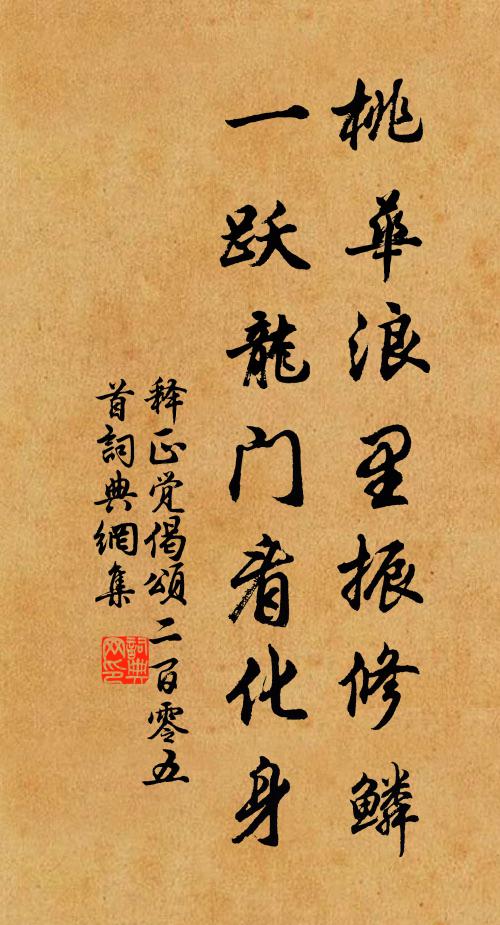 桃華浪里振修鳞
一跃龍门看化身
释正觉偈頌二百零五
首詞典網集
詞典网印